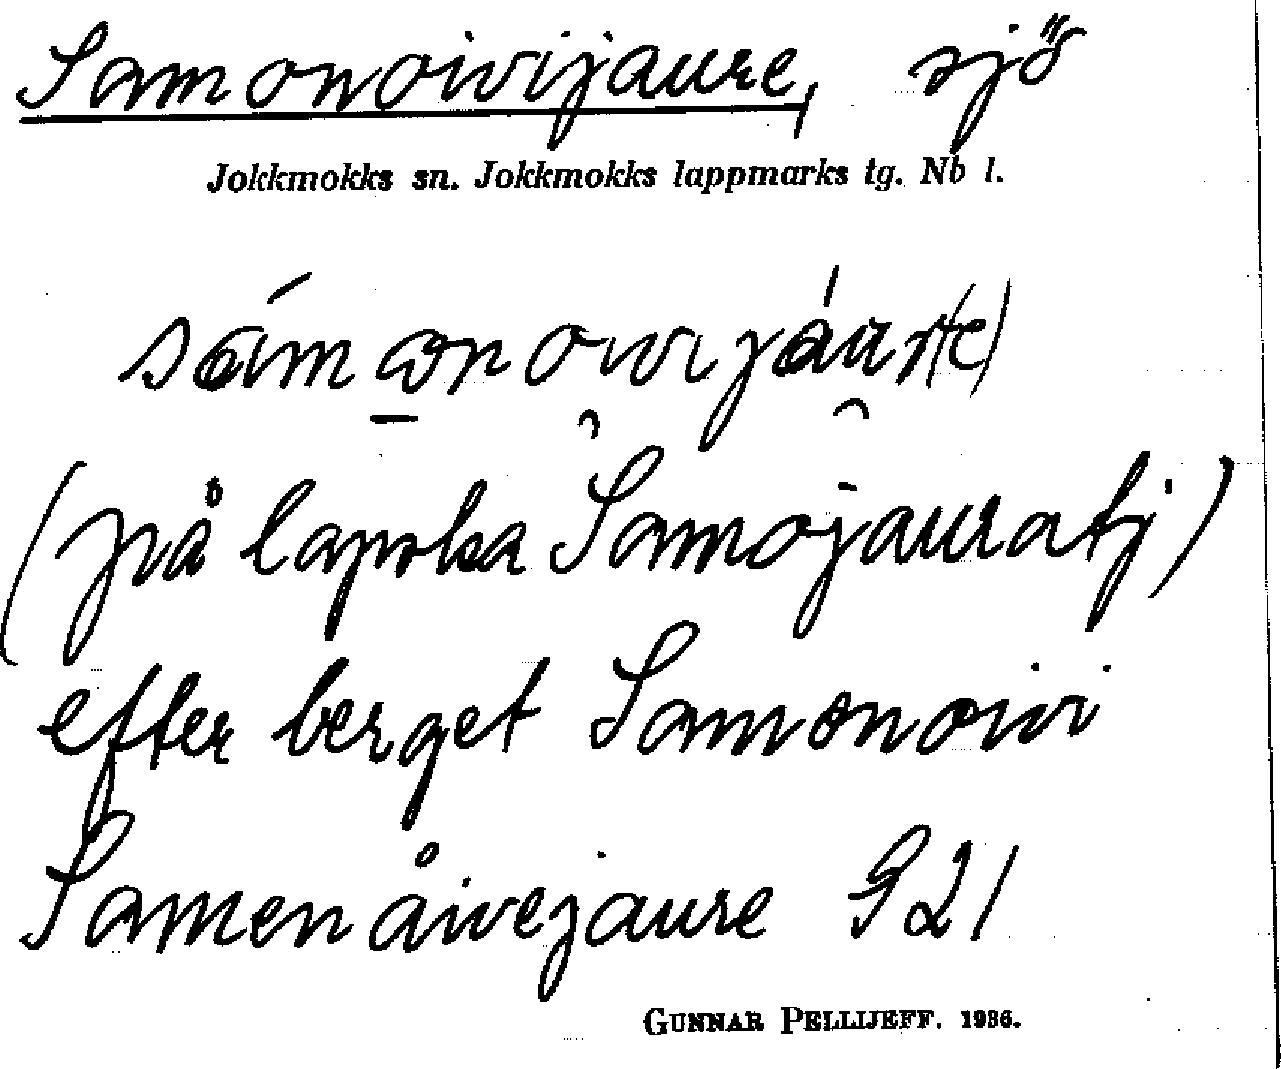 Samonoivijaure, sjö
Jokkmokks sn. Jokkmokks lappmarks tg. Nb l.
(på lapska Samojauratj)
efter berget Samonoivi
Samenåivejaure G21
GUNNAR PELLIJEFF. 1936.